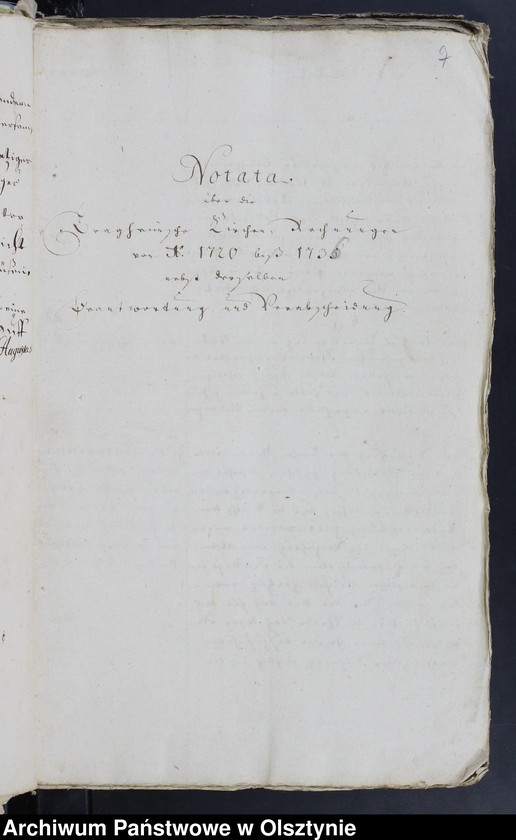 7
Notata
über die
Tragheimsche Kirchen Rechnungen
von A. 1720 biß 1736
nebst derselben
Beantwortung und Verabscheidung.
vor
Augustus
Archiwum Państwowe w Olsztynie